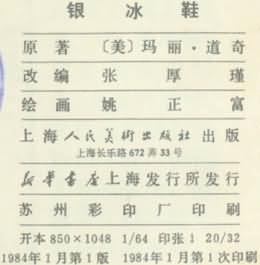 银冰鞋
原著〔美〕玛丽·道奇
改编张厚瑾
绘画姚正富
上海人民美術出版社出版
上海长乐路672弄33号
新华書店上海发行所发行
苏州彩印厂印刷
开本850×1048 1/64 印张1 20/32
1984年1月第1版 1984年1月第1次印刷